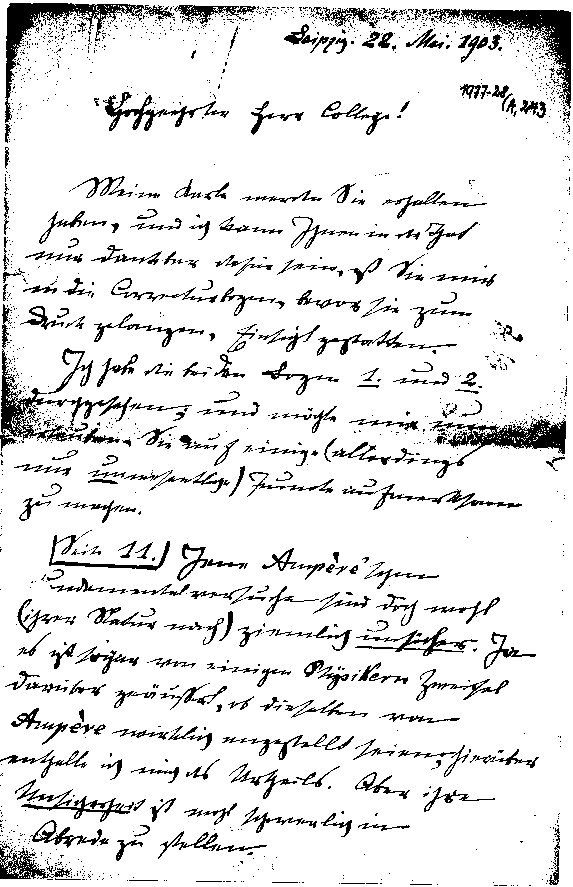 Leipzig. 22. Mai. 1903.
1777-28/A, 2143
Hochgeehrter Herr College!
Meine Karte werden Sie erhalten
haben, und ich kann Ihnen in der That
nur dankbar dafür sein, dß Sie mir
in die Correcturbogen, bevor sie zum
Druck gelangen, Einsicht gestatten.
Ich habe die beiden Bogen 1. und 2.
durchgesehen, und möchte mir nun
erlauben Sie auf einige (allerdings
nur unwesentliche) Puncte aufmerksam
zu machen.
[Seite 11.) Jene Ampère'schen
Fundamentalversuche sind doch wohl
(ihrer Natur nach) ziemlich unsicher. Ja
es ist sogar von einigen Physikern Zweifel
darüber geäussert, ob dieselben von
Ampère wirklich angestellt seien; hierüber
enthalte ich mich des Urtheils. Aber ihre
Unsicherheit ist wohl schwerlich in
Abrede zu stellen.